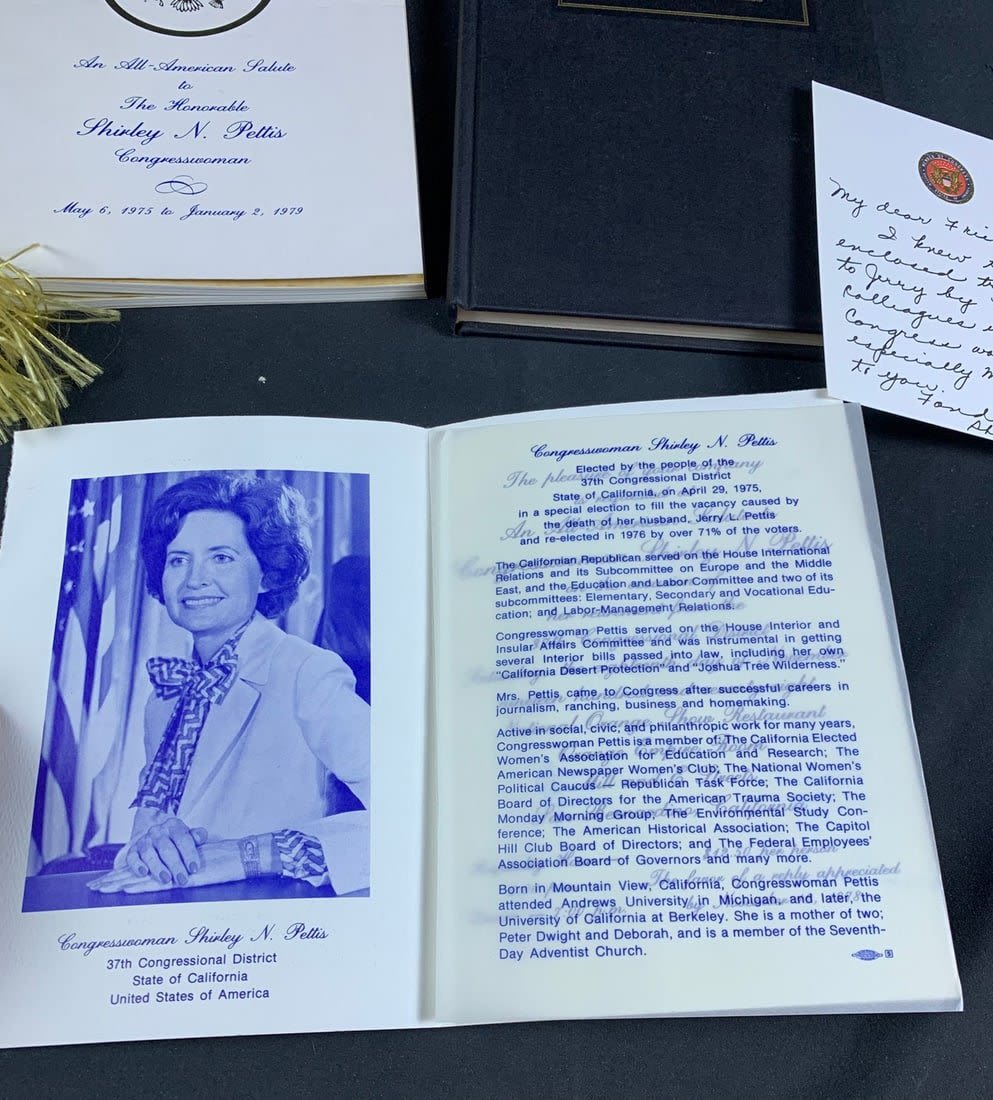 An All-American Salute
to
The Honorable
Shirley N. Pettis
Congresswoman
May 6, 1975 to January 2, 1979
My dear
I knew
enclosed
to Jerry by
Colleagues
Congress
especially
to you.
Congresswoman Shirley N. Pettis
37th Congressional District
State of California
United States of America
Congresswoman Shirley N. Pettis
Elected by the people of the
37th Congressional District
State of California, on April 29, 1975,
in a special election to fill the vacancy caused by
the death of her husband, Jerry L. Pettis
and re-elected in 1976 by over 71% of the voters.
The Californian Republican served on the House International
Relations and its Subcommittee on Europe and the Middle
East, and the Education and Labor Committee and two of its
subcommittees: Elementary, Secondary and Vocational Edu-
cation; and Labor-Management Relations.
Congresswoman Pettis served on the House Interior and
Insular Affairs Committee and was instrumental in getting
several Interior bills passed into law, including her own
“California Desert Protection” and “Joshua Tree Wilderness.”
Mrs. Pettis came to Congress after successful careers in
journalism, ranching, business and homemaking.
Active in social, civic, and philanthropic work for many years,
Congresswoman Pettis is a member of: The California Elected
Women's Association for Education and Research; The
American Newspaper Women's Club; The National Women's
Political Caucus — Republican Task Force; The California
Board of Directors for the American Trauma Society; The
Monday Morning Group; The Environmental Study Con-
ference; The American Historical Association; The Capitol
Hill Club Board of Directors; and The Federal Employees'
Association Board of Governors and many more.
Born in Mountain View, California, Congresswoman Pettis
attended Andrews University in Michigan, and, later, the
University of California at Berkeley. She is a mother of two;
Peter Dwight and Deborah, and is a member of the Seventh-
Day Adventist Church.
The pleasure of your company
An All-American Salute to
Shirley N. Pettis
National Orange Show Restaurant
Orange Empire Room
San Bernardino, California
$12.50 per person
The favor of a reply appreciated